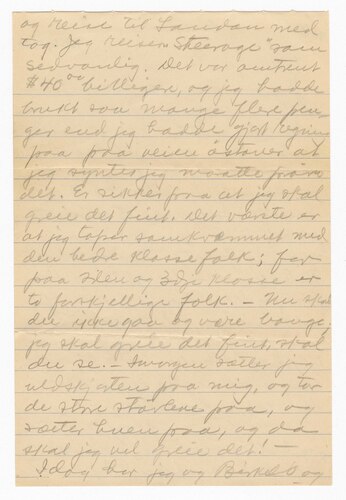 og reise til Landon med
tog. Jeg reiser "Steerage" som
sedvanlig. Det var omtrent
$40⁰⁰ billiger, og jeg hadde
brukt saa mange flere pen-
ger end jeg hadde gjort regning
paa paa veien østover at
jeg syntes jeg maatte
det. Er sikker paa at jeg skal
greie det fint. Det værste er
at jeg taper samkvæmmet med
den bedre klasse folk; for
paa 2den og 3dje klasse er
to forskjellige folk. – Nu skal
du ikke gaa og være bange,
jeg skal greie det fint, skal
du se. – Imorgen sætter jeg
uldskjorten paa mig, og tar
de store støvlene paa, og
sæter huen paa, og da
skal jeg vel greie det! –
Idag har jeg og og